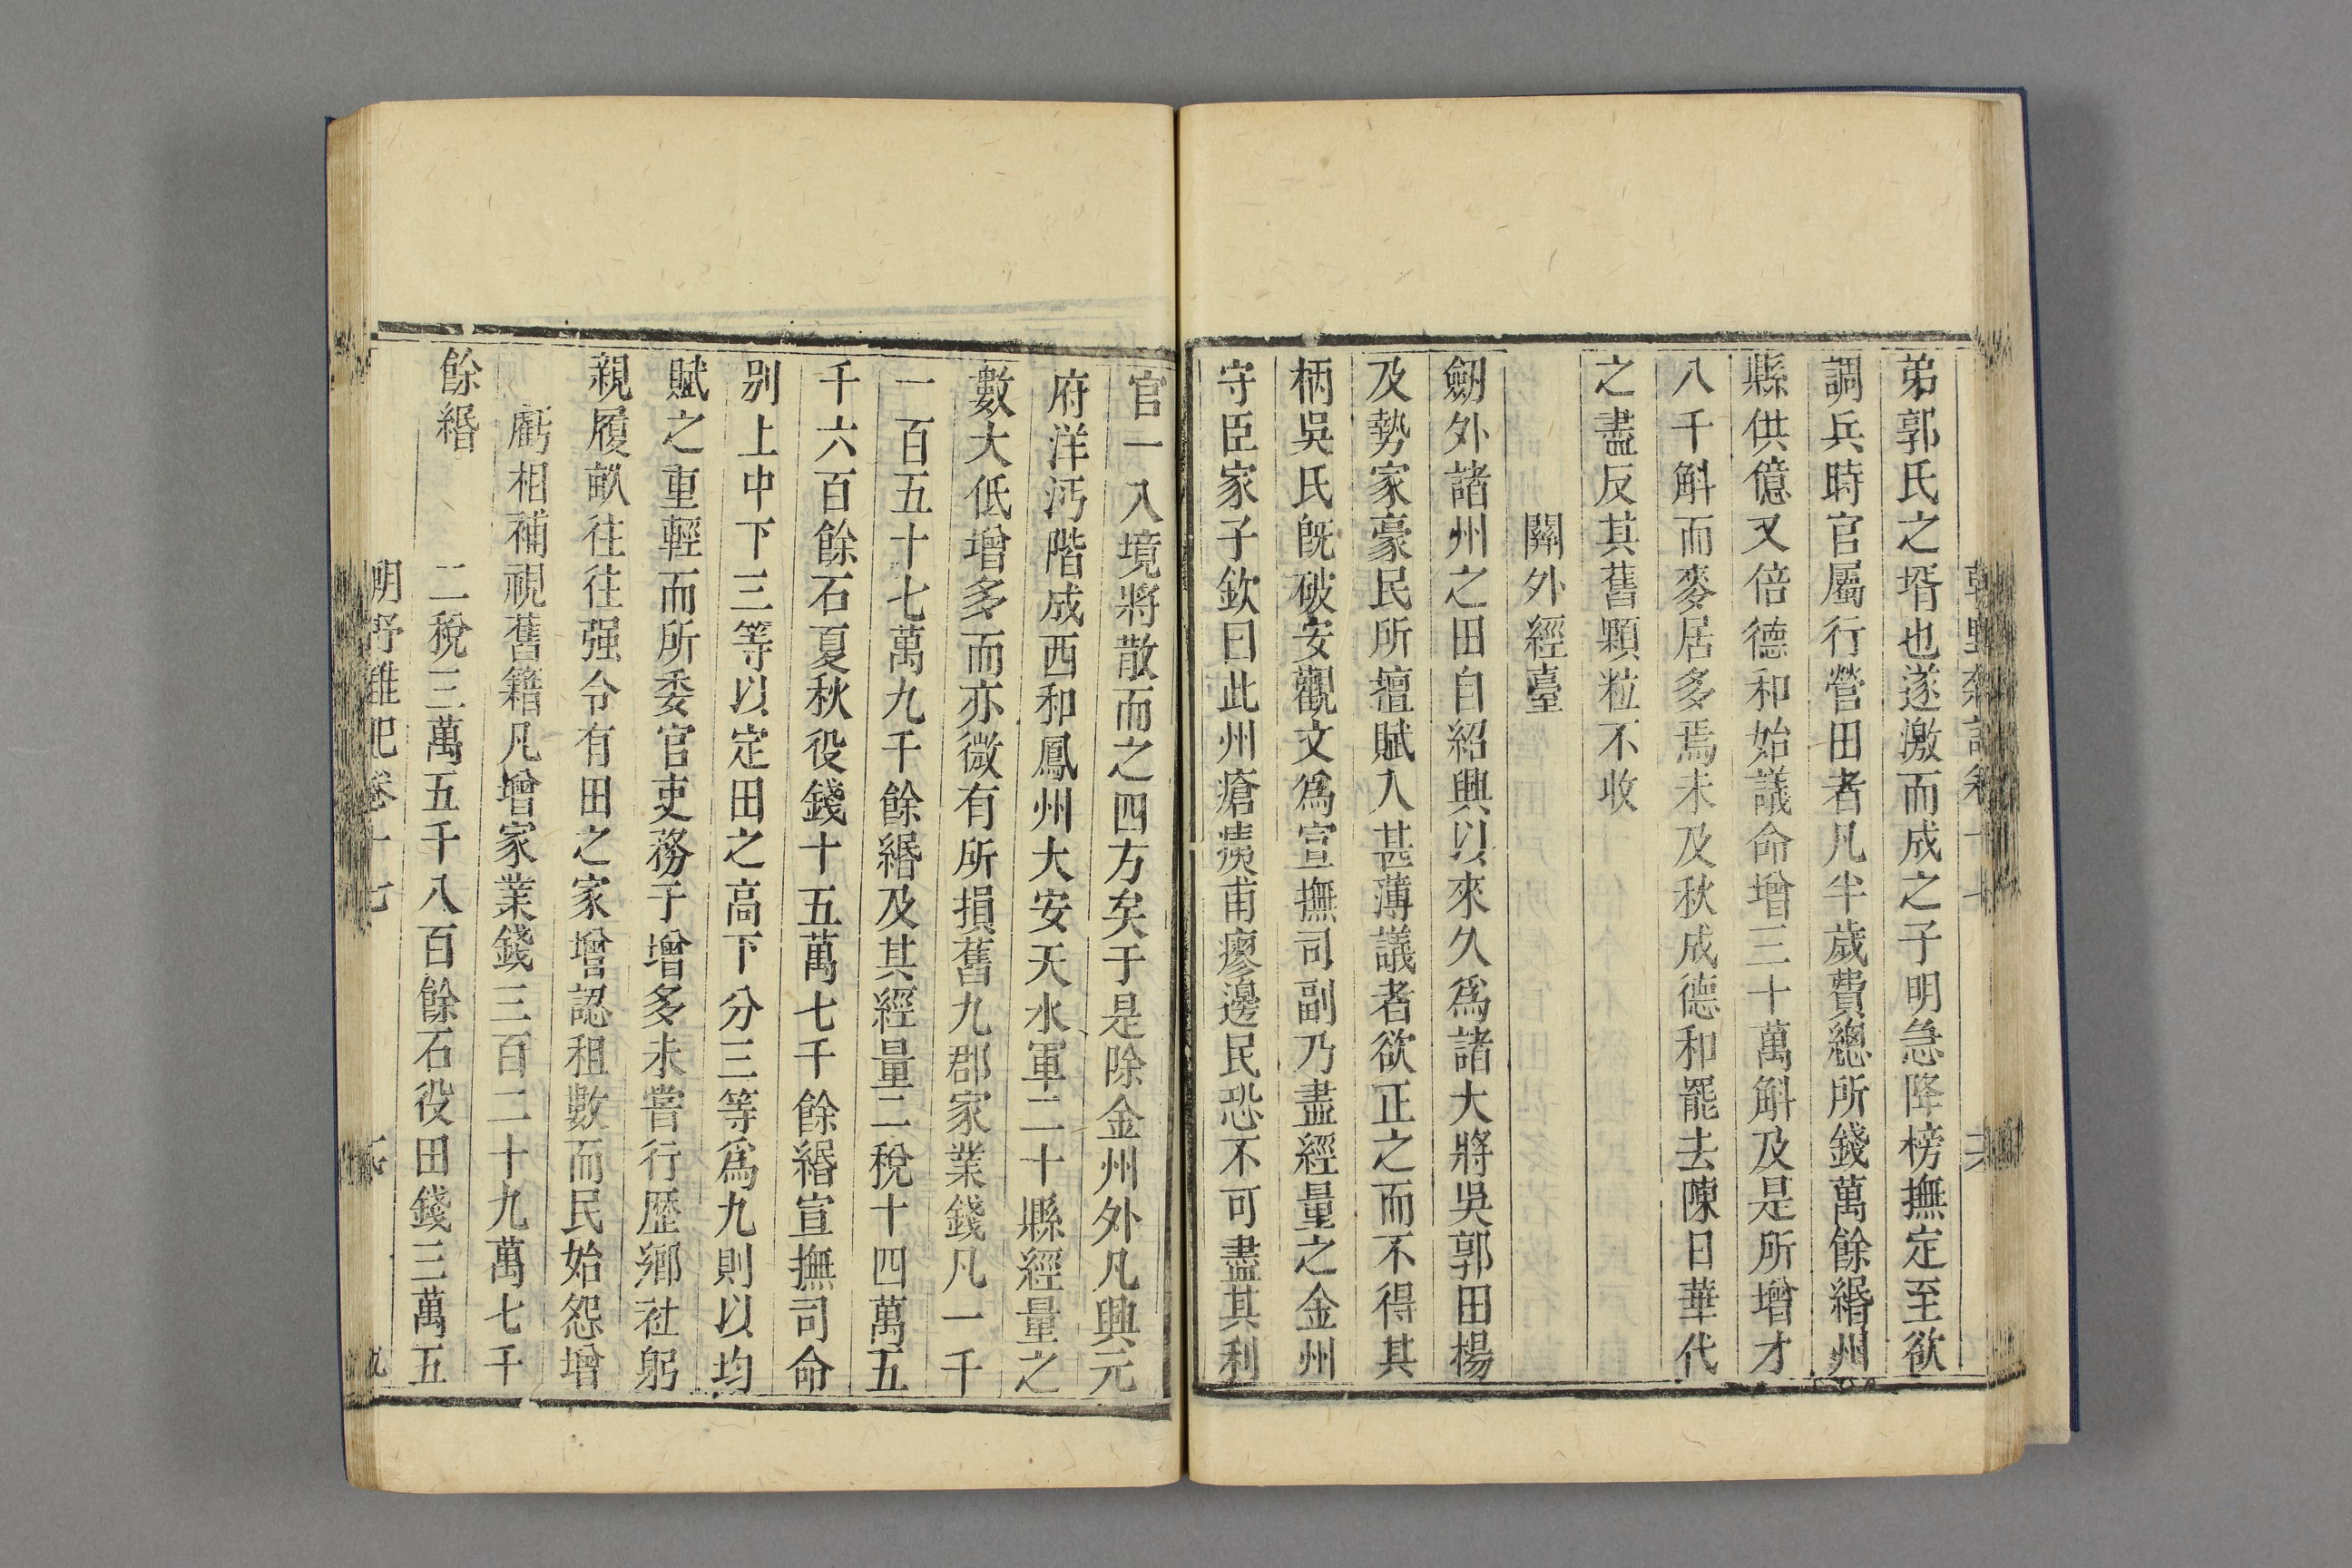 弟郭氏之壻也遂激而成之子明急降榜撫定至欲
調兵時官屬行營田者凡半歲費總所錢萬餘緡州
縣供億又倍德和始議命增三十萬斛及是所增才
八千斛而麥居多焉未及秋成德和罷去陳日華代
之盡反其舊顆粒不收
關外經臺
劒外諸州之田自紹興以來久爲諸大將吳郭田楊
及勢家豪民所擅賦入甚薄議者欲正之而不得其
柄吳氏旣破安觀文爲宣撫司副乃盡經量之金州
守臣家子欽曰此州瘡痍甫瘳邊民恐不可盡其利
官一入境將散而之四方矣于是除金州外凡興元
府洋沔階成西和鳳州大安天水軍二十縣經量之
數大低增多而亦微有所損舊九郡家業錢凡一千
一百五十七萬九千餘緡及其經量二稅十四萬五
千六百餘石夏秋役錢十五萬七千餘緡宣撫司命
别上中下三等以定田之高下分三等爲九則以均
賦之重輕而所委官吏務于增多未嘗行歷鄉社躬
親履畝往往强令有田之家增認租數而民始怨增
虧相補視舊籍凡增家業錢三百二十九萬七千
餘緡 二稅三萬五千八百餘石役田錢三萬五
朝野雜記卷十七
九